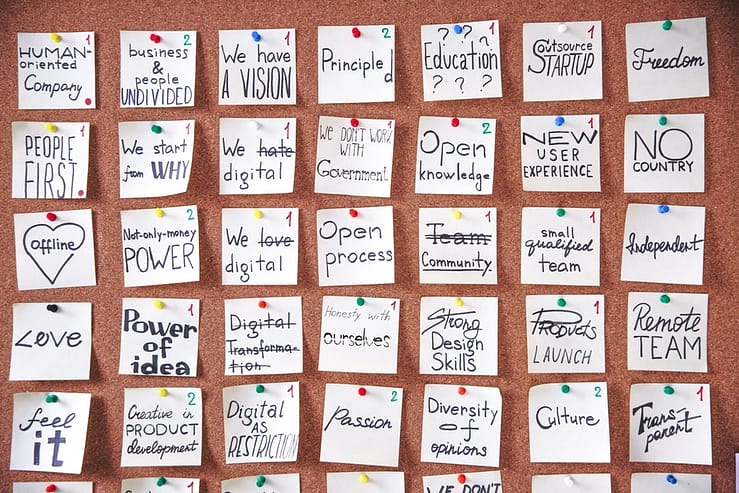 HUMAN- 1
oriented
Company.
business 2
&
people
UNDIVIDED
We have 1
A VISION
2
Principled
? ? ? 1
Education
? ? ?
Outsource 1
STARTUP
Freedom
PEOPLE 1
FIRST
We start 1
from WHY
We hate 1
digital
WE DON'T WORK 1
WITH
Government
Open 2
knowledge
NEW 1
USER
EXPERIENCE
NO
COUNTRY
offline
Not-only-money 2
POWER
We love 1
digital
Open
process
Team 1
Community
small 1
qualified
team
Independent
LOVE
Power
of
idea
Digital
Transforma-
tion
Honesty with 1
ourselves
Strong
Design
Skills
Products 1
LAUNCH
Remote
TEAM
feel
it
Creative in 2
PRODUCT
development
Digital 1
AS
RESTRICTION
2
Passion
Diversity
of
opinions
2
Culture
Trans- 1
parent
1
WE DON'T